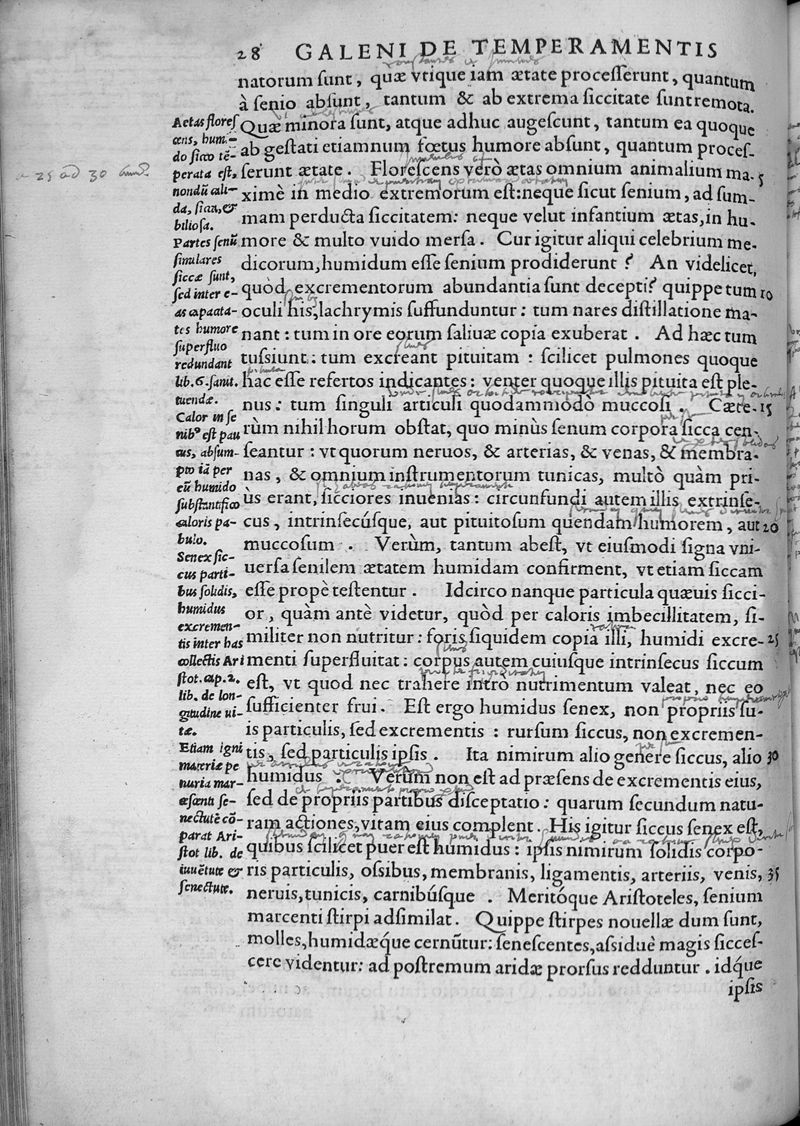 28 GALENI DE TEMPERAMENTIS
natorum ſunt, quæ vtique iam ætate proceſſerunt, quantum
à ſenio abſunt, tantum & ab extrema ſiccitate ſunt remota.
Quæ minora ſunt, atque adhuc augeſcunt, tantum ea quoque
ab geſtati etiamnum fœtus humore abſunt, quantum proceſ-
ſerunt ætate. Floreſcens verò ætas omnium animalium ma- 5
ximè in medio extremorum eſt: neque ſicut ſenium, ad ſum-
mam perducta ſiccitatem: neque velut infantium ætas, in hu-
more & multo vuido merſa. Cur igitur aliqui celebrium me-
dicorum, humidum eſſe ſenium prodiderunt? An videlicet,
quòd excrementorum abundantia ſunt decepti? quippe tum 10
oculi his, lachrymis ſuffunduntur: tum nares diſtillatione ma-
nant: tum in ore eorum ſaliuæ copia exuberat. Ad hæc tum
tuſsiunt: tum excreant pituitam: ſcilicet pulmones quoque
hac eſſe refertos indicantes: venter quoque illis pituita eſt ple-
nus: tum ſinguli articuli quodammodo muccoſi. Cæte- 15
rùm nihil horum obſtat, quo minùs ſenum corpora ſicca cen-
ſeantur: vt quorum neruos, & arterias, & venas, & membra-
nas, & omnium inſtrumentorum tunicas, multò quàm pri-
ùs erant, ſicciores inuenias: circunfundi autem illis extrinſe-
cus, intrinſecúſque, aut pituitoſum quendam humorem, aut 20
muccoſum. Verùm, tantum abeſt, vt eiuſmodi ſigna vni-
uerſa ſenilem ætatem humidam confirment, vt etiam ſiccam
eſſe propè teſtentur. Idcirco nanque particula quæuis ſicci-
or, quàm antè videtur, quòd per caloris imbecillitatem, ſi-
militer non nutritur: foris ſiquidem copia illi, humidi excre- 25
menti ſuperfluitat: corpus autem cuiuſque intrinſecus ſiccum
eſt, vt quod nec trahere intrò nutrimentum valeat, nec eo
ſufficienter frui. Eſt ergo humidus ſenex, non propriis ſu-
is particulis, ſed excrementis: rurſum ſiccus, non excremen-
tis, ſed particulis ipſis. Ita nimirum alio genere ſiccus, alio 30
humidus. Verùm non eſt ad præſens de excrementis eius,
ſed de propriis partibus diſceptatio: quarum ſecundum natu-
ram actiones, vitam eius complent. His igitur ſiccus ſenex eſt,
quibus ſcilicet puer eſt humidus: ipſis nimirum ſolidis corpo-
ris particulis, oſsibus, membranis, ligamentis, arteriis, venis, 35
neruis, tunicis, carnibúſque. Meritóque Ariſtoteles, ſenium
marcenti ſtirpi adſimilat. Quippe ſtirpes nouellæ dum ſunt,
molles, humidæq́ue cernũtur: ſeneſcentes, aſsiduè magis ſicceſ-
cere videntur: ad poſtremum aridæ prorſus redduntur. idq́ue
ipſis
Aetas floreſ
cens, hum.-
do ſicco tẽ-
perata eſt,
nondũ cali-
da, ſicca, &
bilioſa.
Partes ſenũ
ſimulares
ſiccæ ſunt,
ſed inter e-
as capacta-
tes humore
ſuperfluo
redundant
lib. 6. ſanit.
tuendæ.
Calor in ſe
nibꝰ eſt pau
cus, abſum-
pto iã per
eũ humido
ſubſtantifico
caloris pa-
bulo.
Senex ſic-
cus parti-
bus ſolidis,
humidus
excremen-
tis inter has
collectis Ari
ſtot. cap. 2.
lib. de lon-
gitudine ui-
tæ.
Etiam igni
materiæ pe
nuria mar-
ceſcẽti ſe-
nectutẽ cõ-
parat Ari-
ſtot lib. de
iuuẽtute &
ſenectute.
25 ad 30